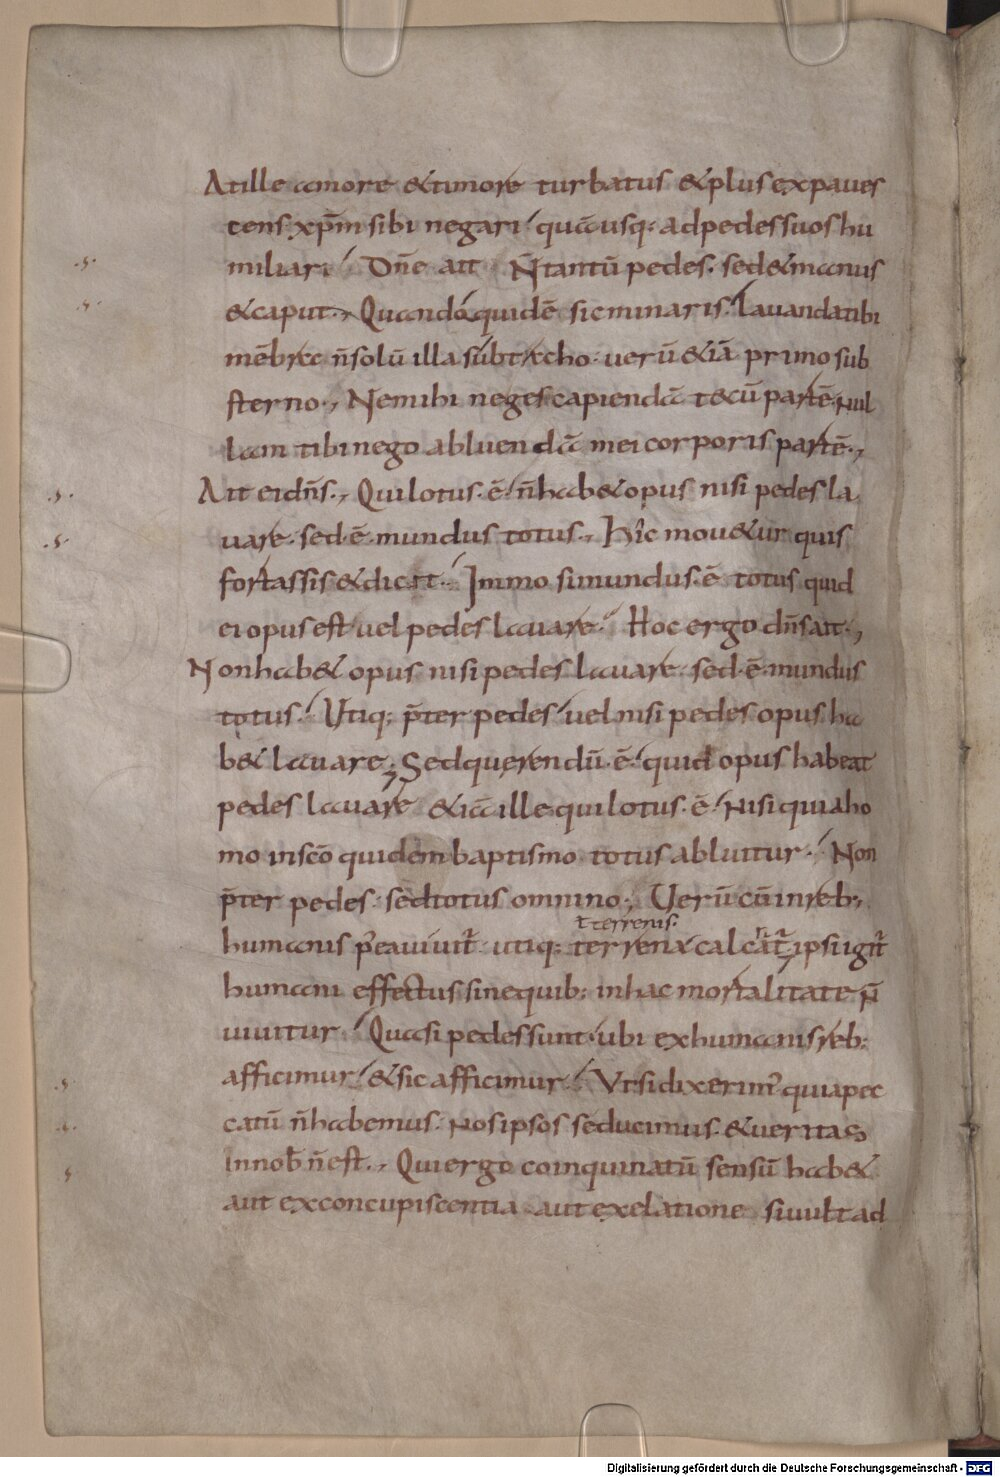 At ille amore & timore turbatus & plus expaues
cens xp̄m sibi negari quā usq; ad pedes suos hu
miliari. Dn̄e ait N̄ tantū pedes. sed & manus
& caput., Quando quidē sic minaris. lauanda tibi
mēbra n̄ solū illa subtraho. uerū & iā primo sub
sterno., Ne mihi neges capiendā tecū partē. Nul
lam tibi nego abluendā mei corporis partē.,
Ait ei dn̄s., Qui lotus. ē. n̄ hab& opus nisi pedes la
uare. sed. ē. mundus totus., Hîc mou&ur quis
fortassis & dicit. Immo si mundus. ē totus quid
ei opus est uel pedes lauare. Hoc ergo dn̄s ait.,
Non hab& opus nisi pedes lauare. sed. ē. mundus
totus. Utiq; p̄ter pedes uel nisi pedes opus ha
b& lauare; Sed querendū. ē. quid opus habeat
pedes lauare & iā ille qui lotus. ē. Nisi quia ho
mo in sc̄o quidem baptismo totus abluitur. Non
p̄ter pedes. sed totus omnino; Uerū cū in reb;
ł terrenis.
humanis p̄ea uiuit̄ utiq; terrena calcat̄. ipsi igit̄
humani effectus sine quib; in hac mortalitate n̄
uiuitur. Quasi pedes sunt. ubi ex humanis reb;
afficimur. & sic afficimur. Ut si dixerim' quia pec
catū n̄ habemus. Nos ipsos seducimus. & ueritas
In nob̄ n̄ est., Qui ergo coinquinatū sensū hab&
aut ex concupiscentia. aut ex elatione. si uult ad
Digitalisierung gefördert durch die Deutsche Forschungsgemeinschaft - DFG